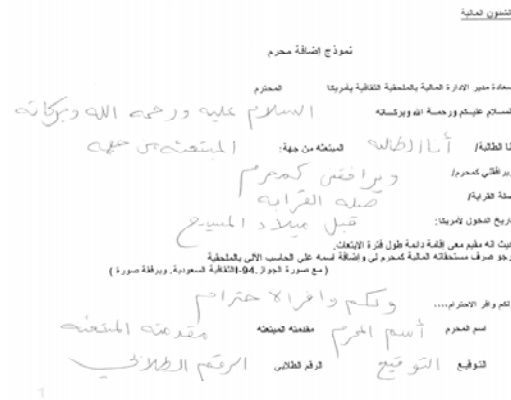 الشئون المالية
نموذج إضافة محرم
سعادة مدير الادارة المالية بالملحقية الثقافية بأمريكا المحترم
السلام عليكم ورحمة الله وبركاته السلام عليه ورحمه الله وبركاته
أنا الطالبة/ أنا الطالبه المبتعثه من جهة: المبتعثه من جهه
ويرافقني كمحرم/ ويرافقني كمحرم
صلة القرابة/ صله القرابه
تاريخ الدخول لأمريكا: قبل ميلاد المسيح
حيث انه مقيم معي إقامة دائمة طول فترة الابتعاث.
أرجو صرف مستحقاته المالية كمحرم لي وإضافة اسمه على الحاسب الآلي بالملحقية
الثقافية السعودية. ويرفقة صورة ) -94ا (مع صورة الجواز.
ولكم وافر الاحترام.... ولكم وافر الاحترام
اسم المحرم أسم المحرم مقدمته المبتعثه مقدمته المبتعثه
التوقيع التوقيع الرقم الطلابى الرقم الطلابي
1